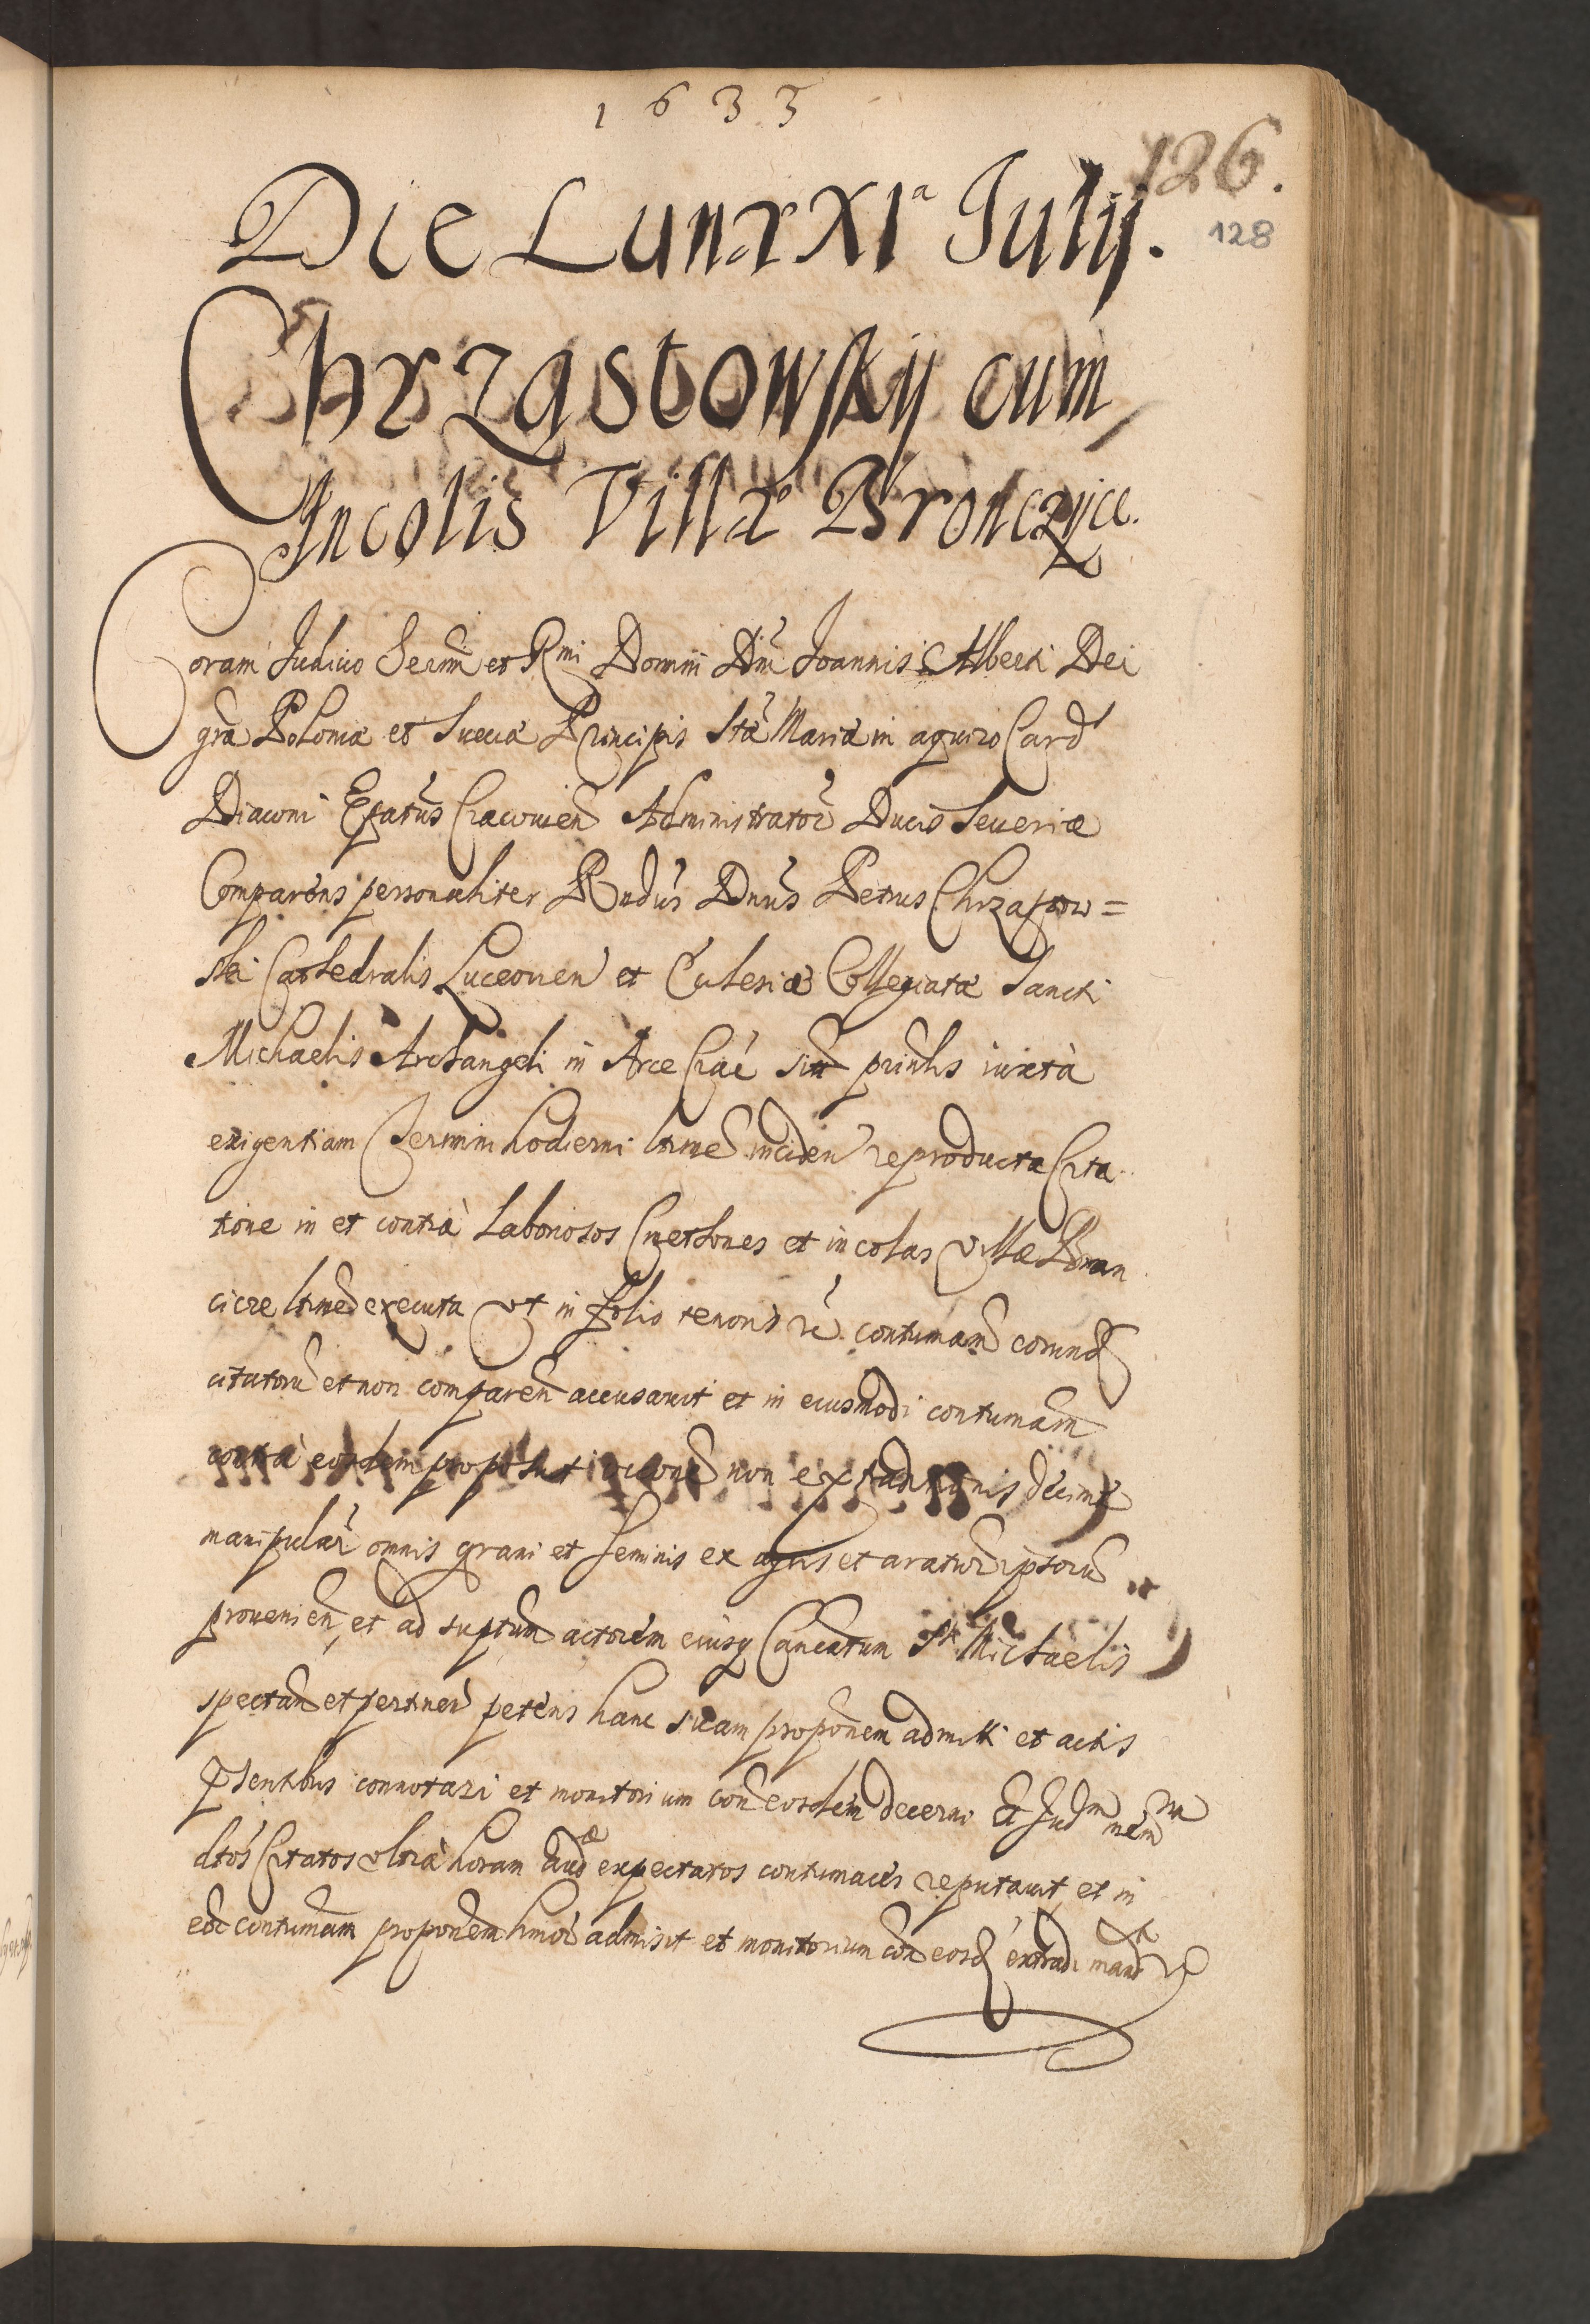 1633
126.
128
Die Lunæ XIª Julij.
Chrząstowskij cum
Incolis Villæ Bronczijce.
Coram Judicio Sermi et Rmi Domini Dni Joannis Alberti Dei
gra Poloniæ et Sueciæ Principis Stæ Mariæ in aquiro Card
Diaconi Epatus Cracovien Administrator Ducis Severiæ
Comparens personaliter Rndus Dnus Petrus Chrząstow=
ski Cathedralis Luceorien et Ecclesiæ Collegiatæ Sancti
Michaelis Archangeli in Arce Crac juxta
exigentiam Termini hodierni ltime inciden reproducta Cita
tione in et contra Laboriosos Cmethones et incolas villæ Bron
cicze ltime executa ut in folio tenoris rc contumam eorund
citatoru et non comparen accusavit et in eiusmodi contumam
contra eosdem proposuit non extraditionis decimæ
manipular omnis grani et seminis ex agris et ipsoru
provenien, et ad suptum actorem eiusq CanCatum Sti Michaelis
spectan et pertinen petens hanc suam proponem admitti et actis
pntibus connotari et monitorium con eosdem decerni Et Judm
dtos Citatos ultra horam Audæ expectatos contumaces reputavit et in
eor contumam proponem hmoi admisit et monitorium con eosd extradi mandt rc